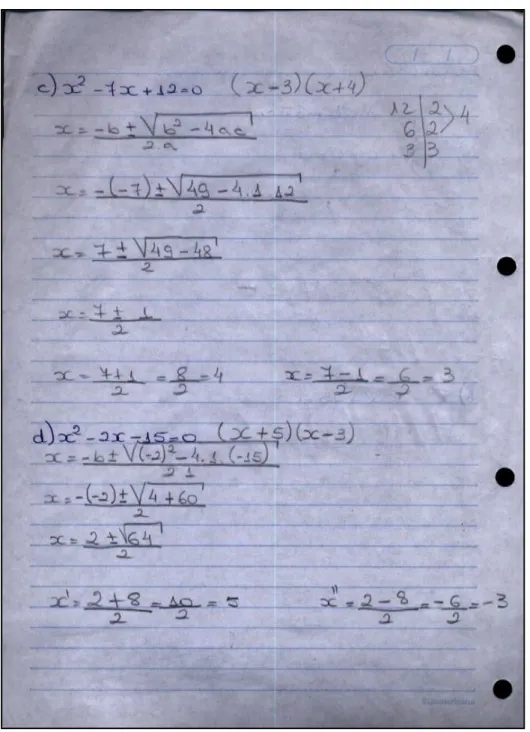 c) x² - 7x + 12 = 0 (x - 3)(x + 4)
12 | 2 > 4
6 | 2
3 | 3
x = -b ± √(b² - 4ac) / 2.a
x = -(-7) ± √(49 - 4.1.12) / 2
x = 7 ± √(49 - 48) / 2
x = 7 ± 1 / 2
x = 7+1 / 2 = 8/2 = 4 x = 7-1 / 2 = 6/2 = 3
d) x² - 2x - 15 = 0 (x + 5)(x - 3)
x = -b ± √((-2)² - 4.1.(-15)) / 2.1
x = -(-2) ± √(4 + 60) / 2
x = 2 ± √64 / 2
x' = 2+8 / 2 = 10/2 = 5 x'' = 2-8 / 2 = -6/2 = -3